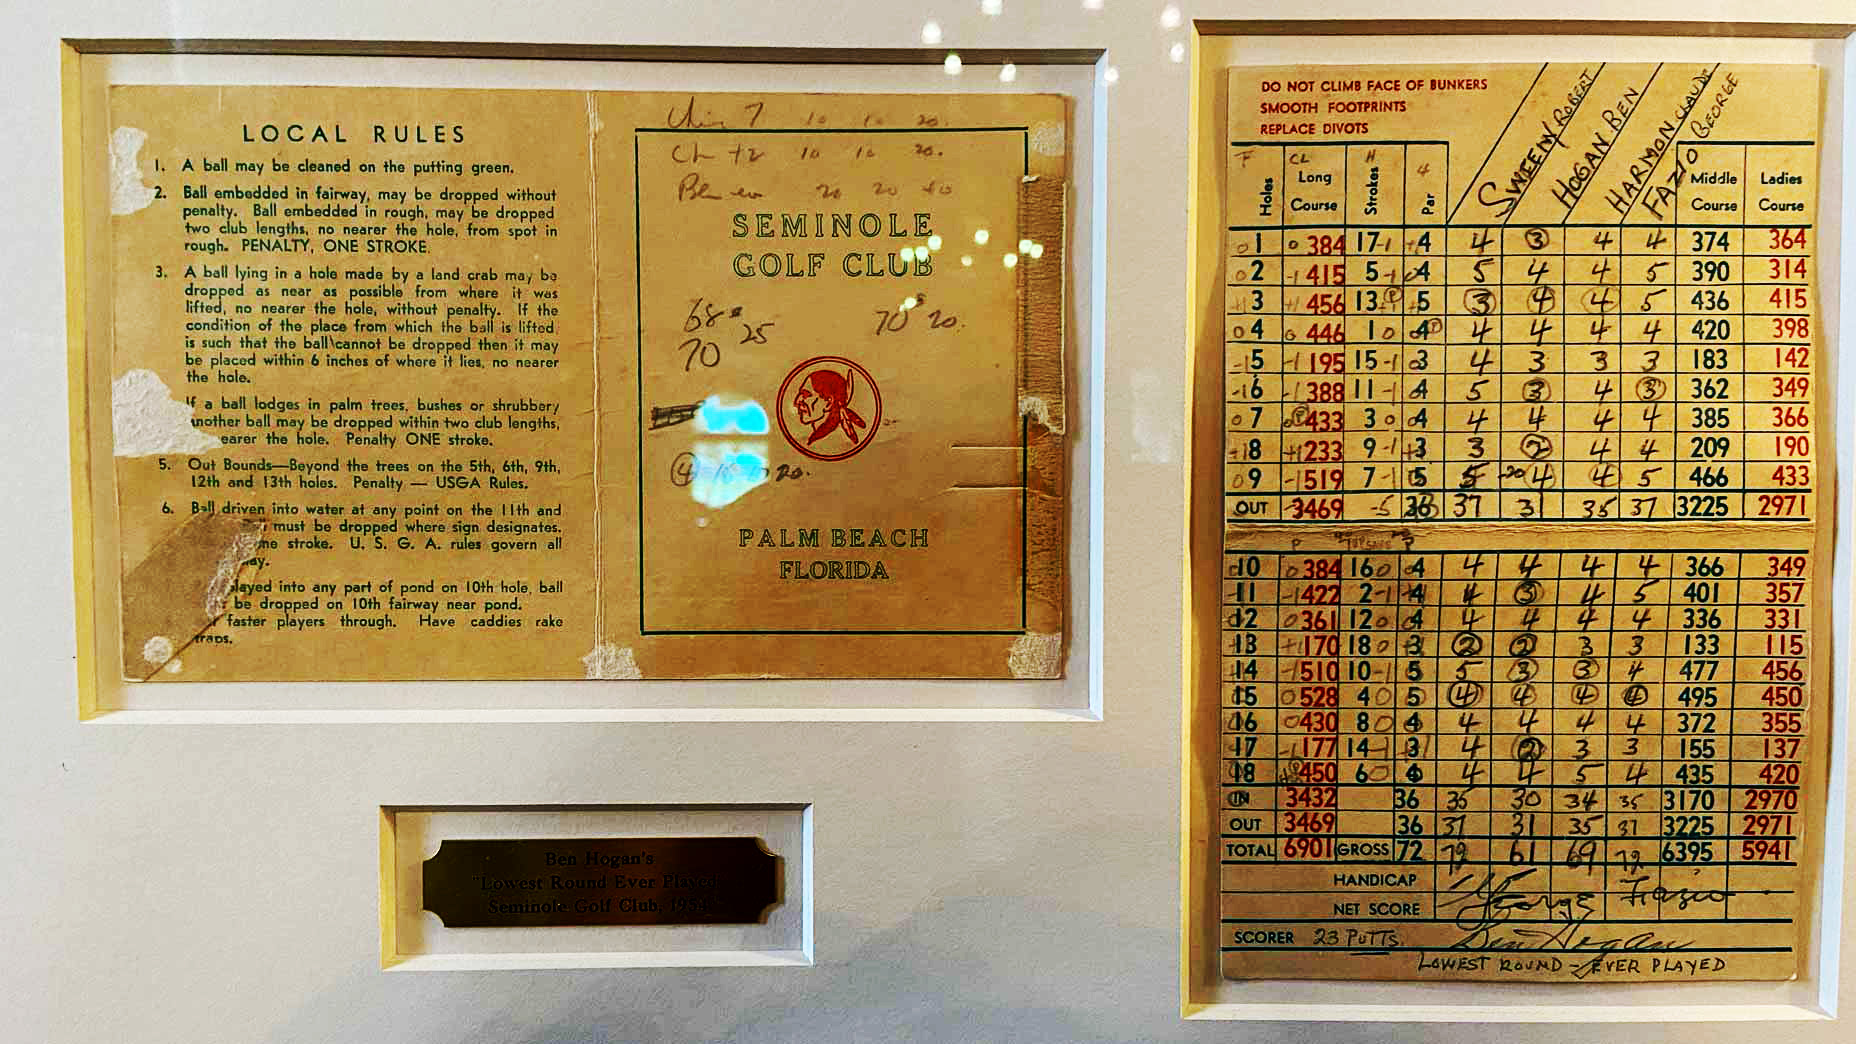 LOCAL RULES
1. A ball may be cleaned on the putting green.
2. Ball embedded in fairway, may be dropped without
penalty. Ball embedded in rough, may be dropped
two club lengths, no nearer the hole, from spot in
rough. PENALTY, ONE STROKE.
3. A ball lying in a hole made by a land crab may be
dropped as near as possible from where it was
lifted, no nearer the hole, without penalty. If the
condition of the place from which the ball is lifted
is such that the ball cannot be dropped then it may
be placed within 6 inches of where it lies, no nearer
the hole.
If a ball lodges in palm trees, bushes or shrubbery
another ball may be dropped within two club lengths,
nearer the hole. Penalty ONE stroke.
5. Out Bounds—Beyond the trees on the 5th, 6th, 9th,
12th and 13th holes. Penalty — USGA Rules.
6. Ball driven into water at any point on the 11th and
must be dropped where sign designates.
one stroke. U. S. G. A. rules govern all
played into any part of pond on 10th hole, ball
be dropped on 10th fairway near pond.
faster players through. Have caddies rake
traps.
10 10 20.
10 10 20.
20 20 40
SEMINOLE
GOLF CLUB
68 25 70 20.
70
4 20.
PALM BEACH
FLORIDA
Ben Hogan's
"Lowest Round Ever Played"
Seminole Golf Club, 1954
DO NOT CLIMB FACE OF BUNKERS
SMOOTH FOOTPRINTS
REPLACE DIVOTS
Holes Long Course Strokes Par SWEENY ROBERT HOGAN BEN HARMON CLAUDE FAZIO GEORGE Middle Course Ladies Course
1 384 17 4 4 3 4 4 374 364
2 415 5 4 5 4 4 5 390 314
3 456 13 5 3 4 4 5 436 415
4 446 1 4 4 4 4 4 420 398
5 195 15 3 4 3 3 3 183 142
6 388 11 4 5 3 4 3 362 349
7 433 3 4 4 4 4 4 385 366
8 233 9 3 3 2 4 4 209 190
9 519 7 5 5 4 4 5 466 433
OUT 3469 36 37 31 35 37 3225 2971
10 384 16 4 4 4 4 4 366 349
11 422 2 4 4 3 4 5 401 357
12 361 12 4 4 4 4 4 336 331
13 170 18 3 2 2 3 3 133 115
14 510 10 5 5 3 3 4 477 456
15 528 4 5 4 4 4 4 495 450
16 430 8 4 4 4 4 4 372 355
17 177 14 3 4 2 3 3 155 137
18 450 6 4 4 4 5 4 435 420
IN 3432 36 35 30 34 35 3170 2970
OUT 3469 36 37 31 35 37 3225 2971
TOTAL 6901 GROSS 72 72 61 69 72 6395 5941
HANDICAP
NET SCORE George Fazio
SCORER 23 PUTTS. Ben Hogan
LOWEST ROUND - EVER PLAYED